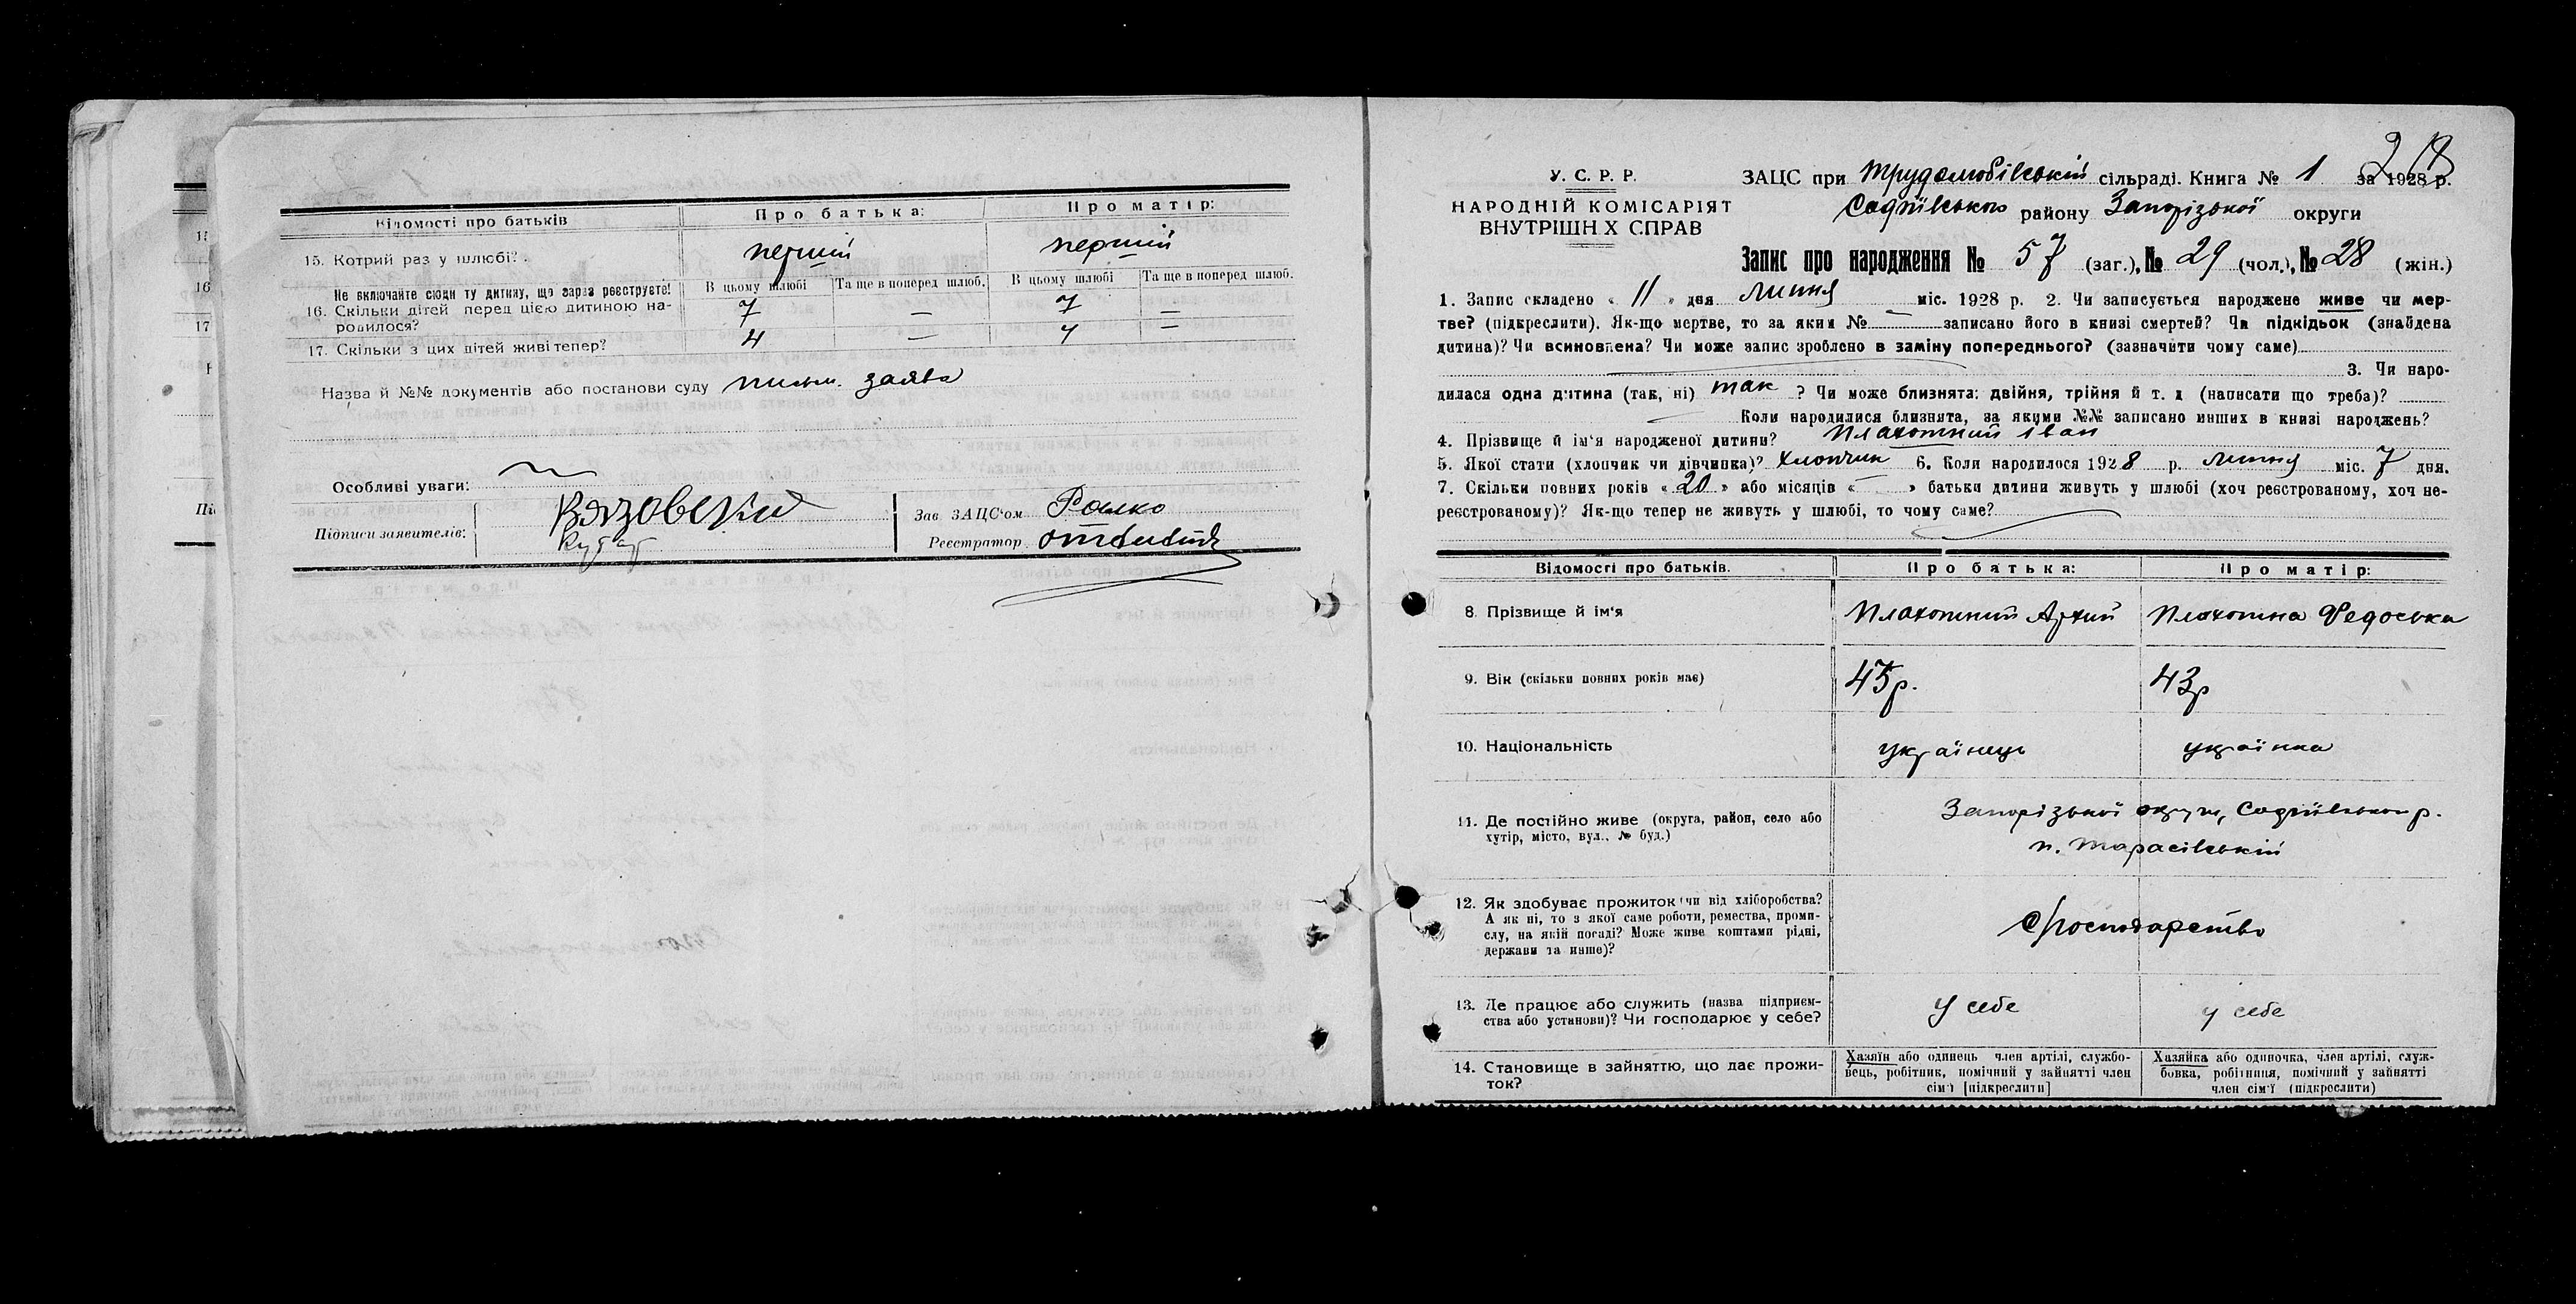 Відомості про батьків
Про батька:
Про матір:
15. Котрий раз у шлюбі?
перший
перший
Не включайте сюди ту дитину, що зараз реєструєте!
16. Скільки дітей перед цією дитиною на-
родилося?
В цьому шлюбі
Та ще в поперед шлюб.
В цьому шлюбі
Та ще в поперед шлюб.
7 — 7 —
17. Скільки з цих дітей живі тепер?
4 — 4 —
Назва й №№ документів або постанови суду письм. заява
Особливі уваги:
Підписи заявителів:
Вязовский
Зав ЗАЦС'ом
Реєстратор
15
16
17
У. С. Р. Р.
НАРОДНІЙ КОМІСАРІЯТ
ВНУТРІШНХ СПРАВ
ЗАЦС при Трудолюбівській сільраді. Книга № 1 за 1928 р.
Софіївського району Запорізької округи
Запис про народження № 57 (заг.), № 29 (чол.), № 28 (жін.)
1. Запис складено « 11 » дня липня міс. 1928 р. 2. Чи записується народжене живе чи мер-
тве? (підкреслити). Як-що мертве, то за яким № — записано його в книзі смертей? Чи підкідьок (знайдена
дитина)? Чи всиновлена? Чи може запис зроблено в заміну попереднього? (зазначити чому саме)
3. Чи наро-
дилася одна дитина (так, ні) так ? Чи може близнята: двійня, трійня й т. д (написати що треба)?
Коли народилися близнята, за якими №№ записано инших в книзі народжень?
4. Прізвище й ім'я народженої дитини? Плахотний Іван
5. Якої стати (хлопчик чи дівчинка)? Хлопчик 6. Коли народилося 1928 р. липня міс. 7 дня.
7. Скільки повних років « 20 » або місяців « — » батьки дитини живуть у шлюбі (хоч реєстрованому, хоч не-
реєстрованому)? Як-що тепер не живуть у шлюбі, то чому саме?
Відомості про батьків.
Про батька:
Про матір:
8. Прізвище й ім'я
Плахотний Архип
Плахотна Федоська
9. Вік (скільки повних років має)
45 р.
43 р
10. Національність
українець
українка
11. Де постійно живе (округа, район, село або
хутір, місто, вул., № буд.)
Запорізької округи, Софіївського р.
п. Тарасівській
12. Як здобуває прожиток чи від хліборобства?
А як ні, то з якої саме роботи, ремества, проми-
слу, на якій посаді? Може живе коштами рідні,
держави та инше)?
Господарство
13. Де працює або служить (назва підприєм-
ства або установи)? Чи господарює у себе?
у себе
у себе
14. Становище в зайняттю, що дає прожи-
ток?
Хазяїн або одинець член артілі, службо-
вець, робітник, помічний у зайнятті член
сім'ї [підкреслити]
Хазяйка або одиночка, член артілі, служ-
бовка, робітниця, помічний у зайнятті
член сім'ї (підкреслити)